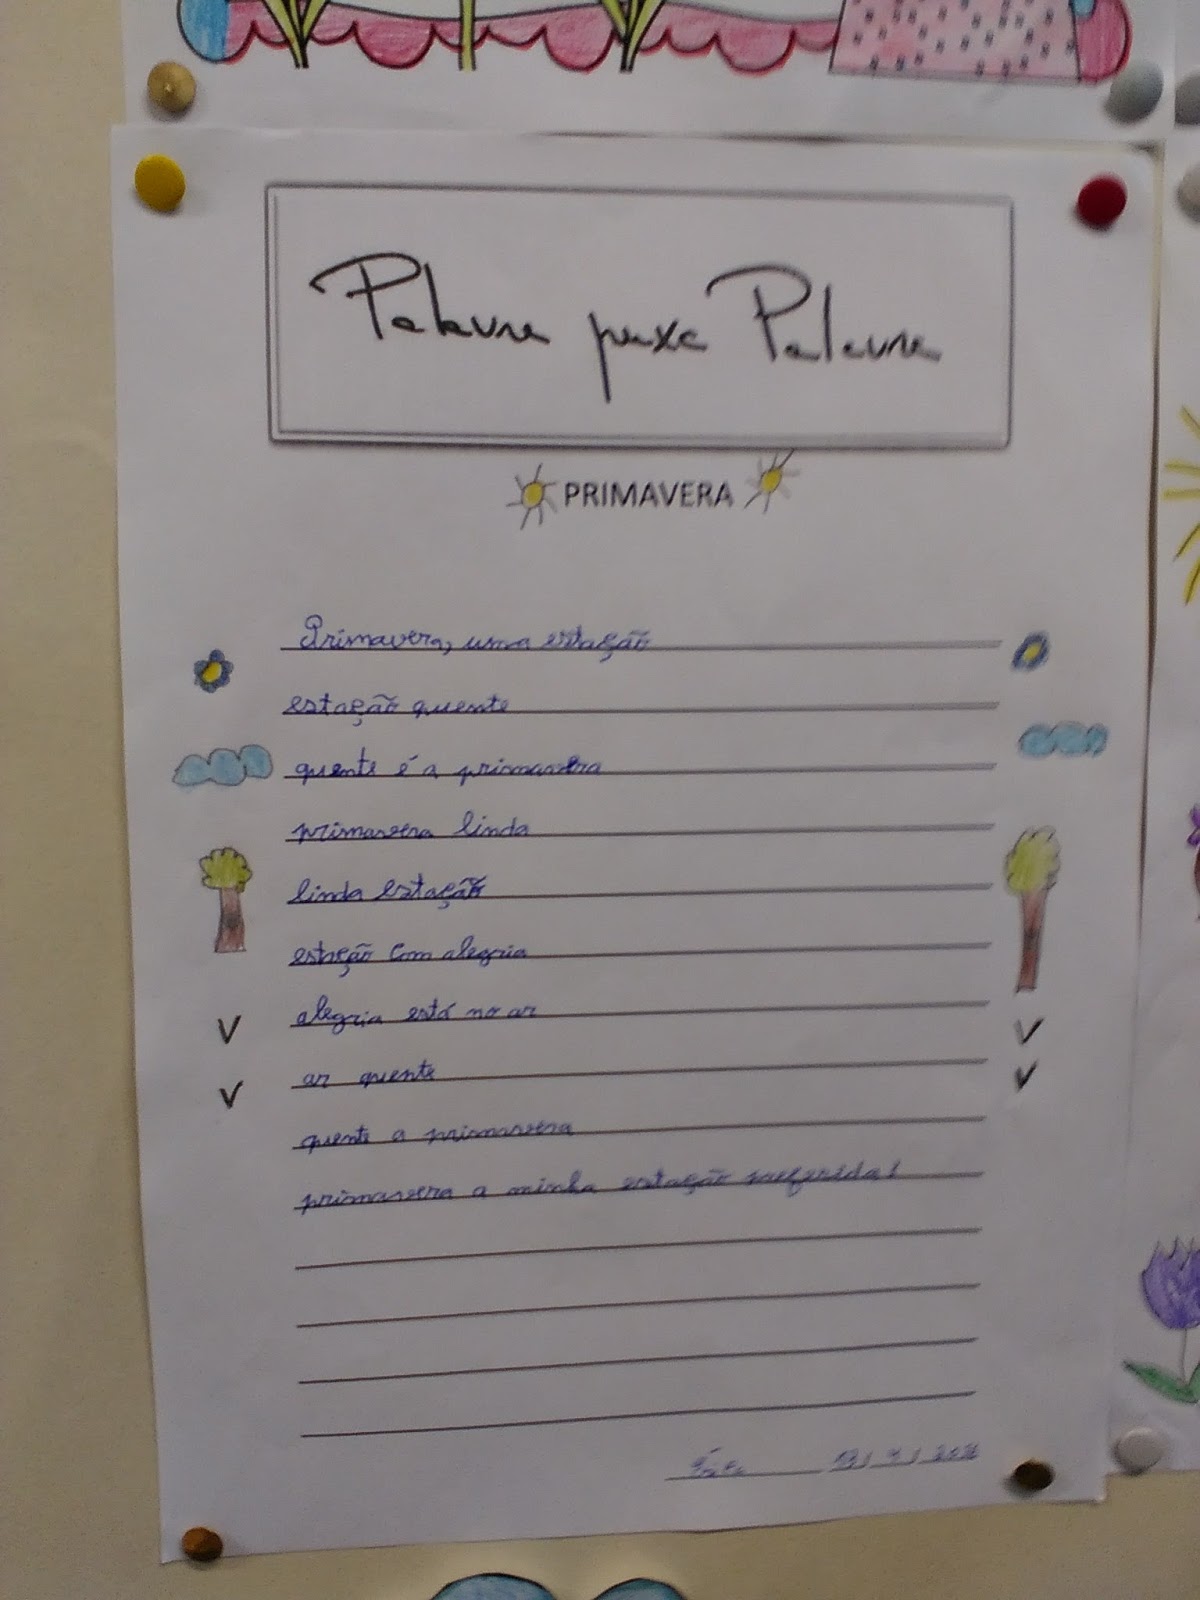 Palavra puxa Palavra
PRIMAVERA
Primavera, uma estação
estação quente
quente é a primavera
primavera linda
linda estação
estação com alegria
alegria está no ar
ar quente
quente a primavera
primavera a minha estação preferida!